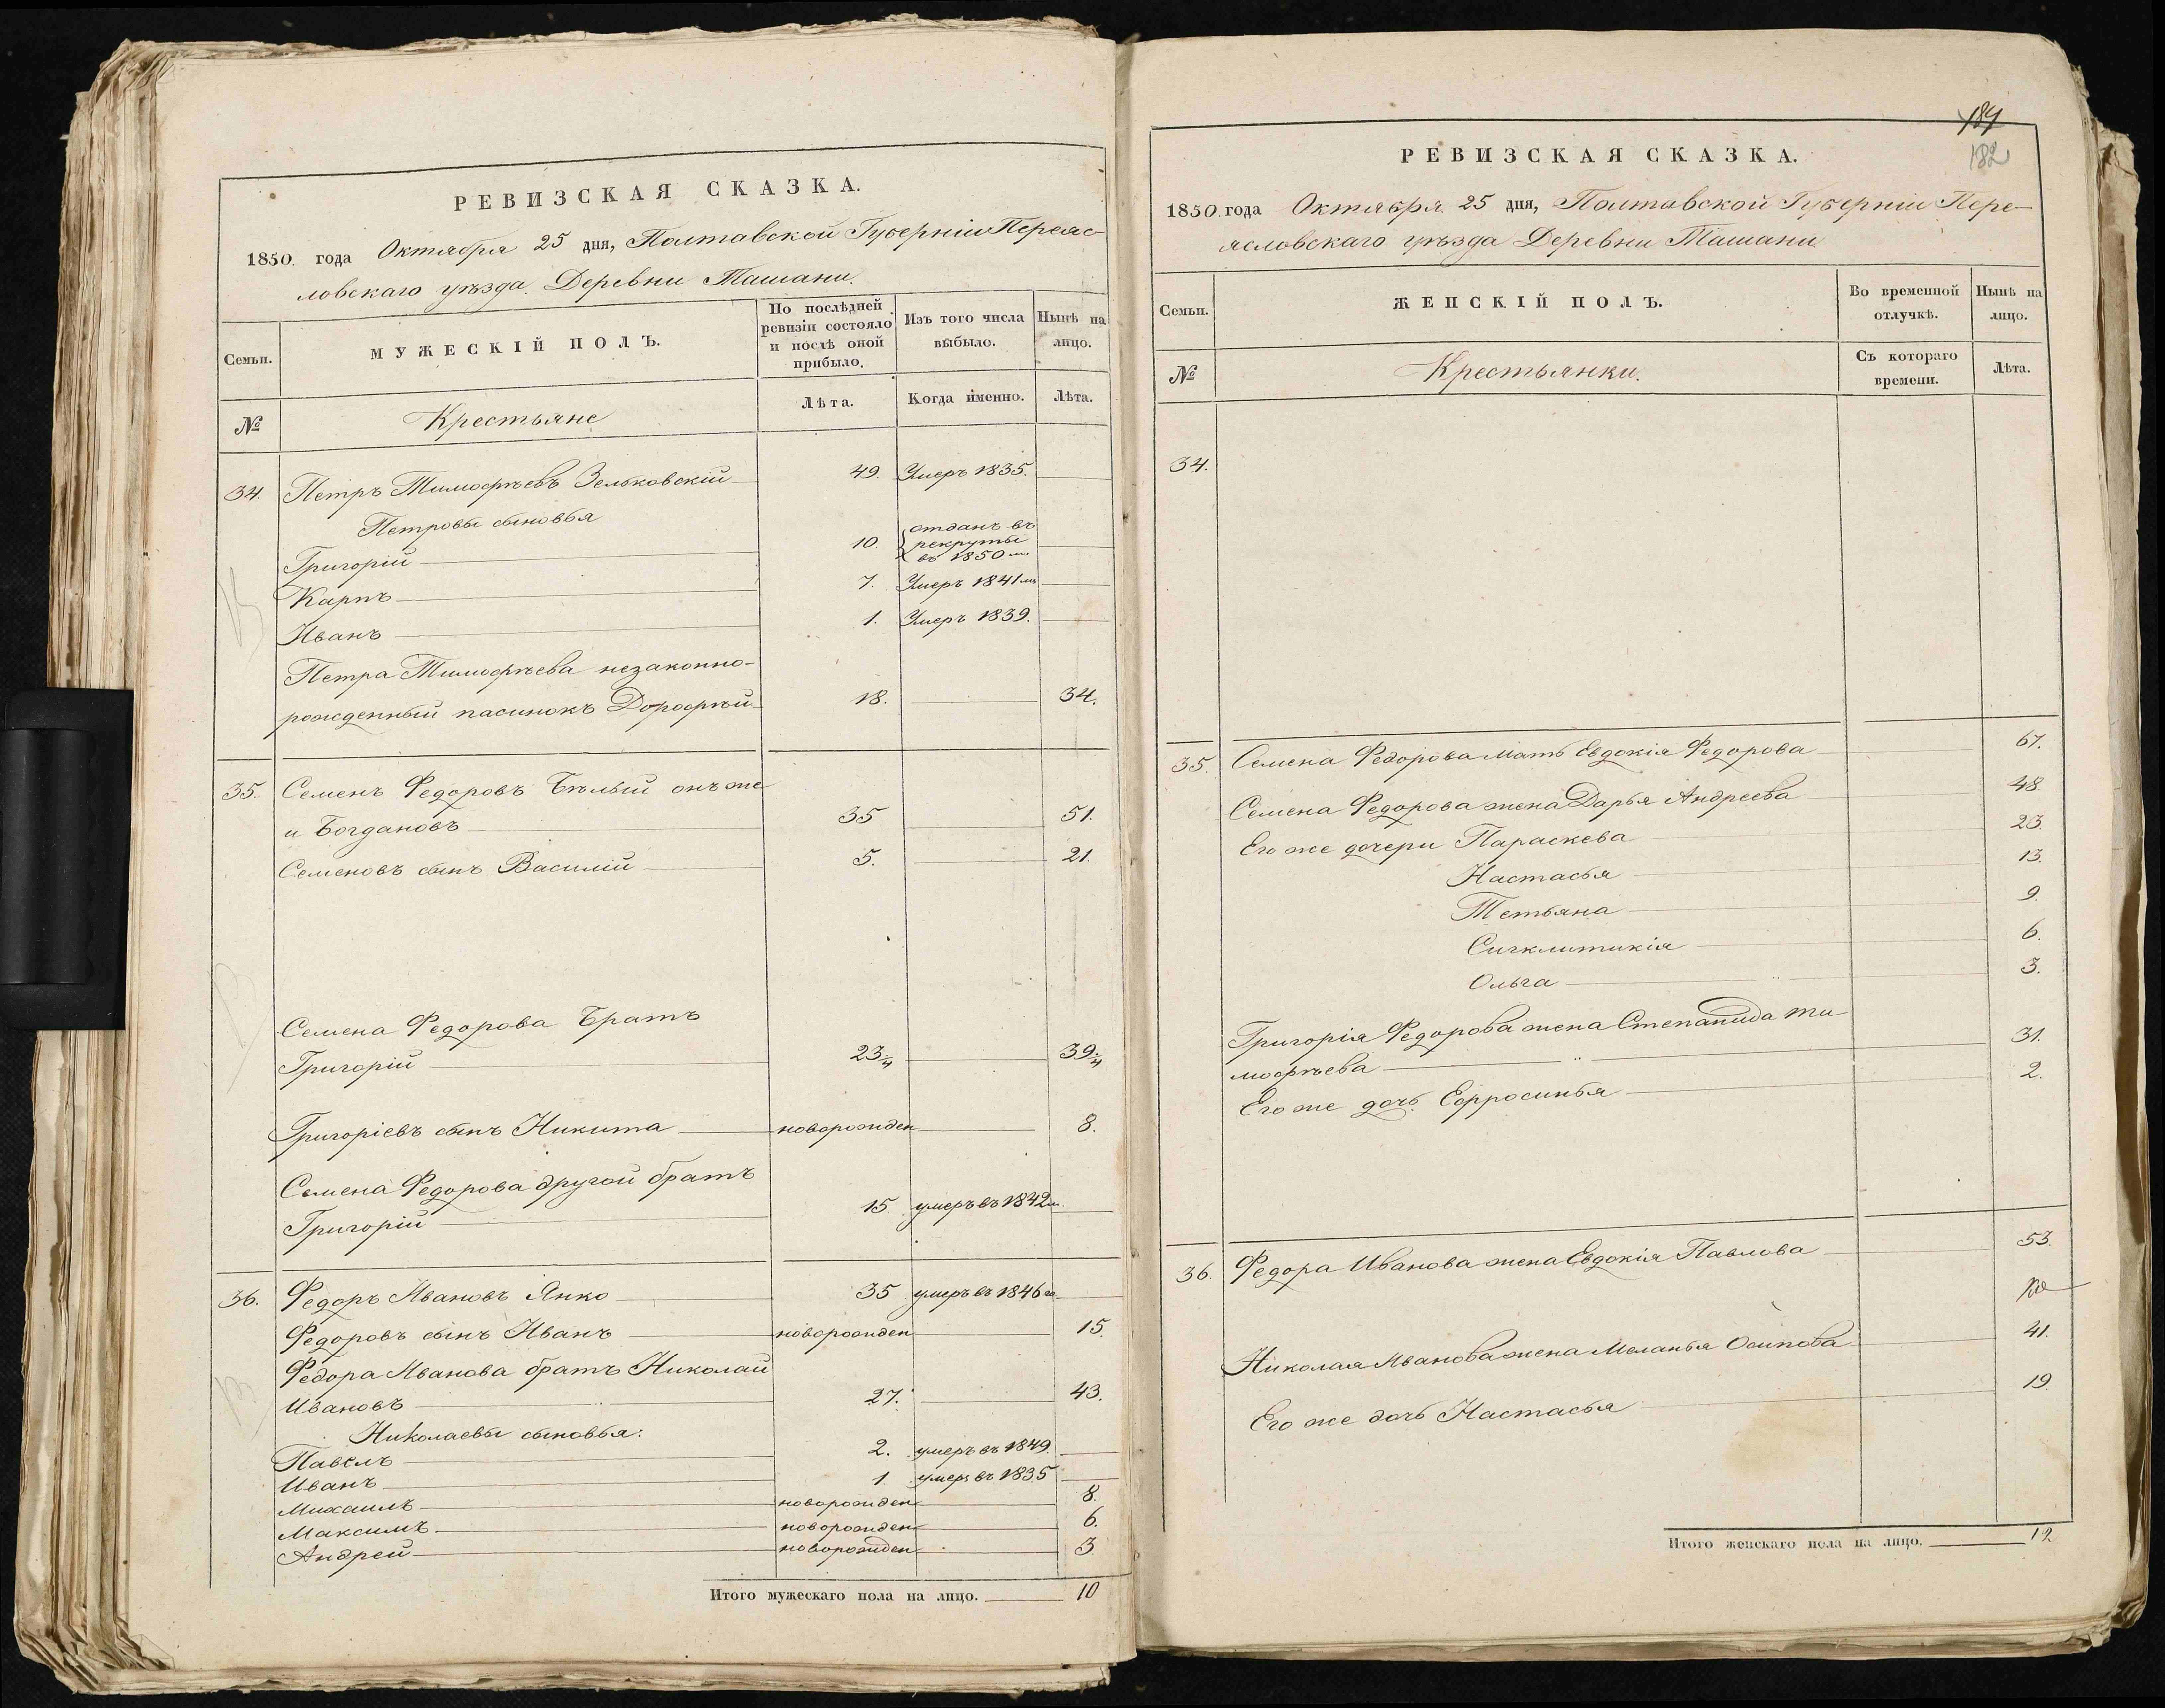 РЕВИЗСКАЯ СКАЗКА.
1850. года Октября 25 дня, Полтавской Губерніи Переяс-
ловскаго уѣзда. Деревни Ташани.
Семьи. МУЖЕСКІЙ ПОЛЪ. По послѣдней ревизіи состояло и послѣ оной прибыло. Изъ того числа выбыло. Нынѣ на лицо.
№ Крестьяне Лѣта. Когда именно. Лѣта.
34. Петръ Тимофѣевъ Зельковскій 49. Умеръ 1835.
Петровы сыновья
Григорій 10. отданъ въ рекруты въ 1850 м.
Карпъ 7. Умеръ 1841 мъ
Иванъ 1. Умеръ 1839.
Петра Тимофѣева незаконно-
рожденный пасинокъ Дорофѣй 18. 34.
35. Семенъ Федоровъ Бѣлый онъ же
и Богдановъ 35 51.
Семеновъ сынъ Василій 5. 21.
Семена Федорова Братъ
Григорій 23¼ 39¼
Григоріевъ сынъ Никита новорожден 8.
Семена Федорова другой братъ
Григорій 15 умеръ въ 1842 м.
36. Федоръ Ивановъ Янко 35 умеръ въ 1846 го
Федоровъ сынъ Иванъ новорожден 15.
Федора Иванова братъ Николай
Ивановъ 27. 43.
Николаевы сыновья:
Павелъ 2. умеръ въ 1849.
Иванъ 1. умеръ въ 1835
Михаилъ новорожден 8.
Максимъ новорожден 6.
Андрей новорожден 3
Итого мужескаго пола на лицо. 10
184
182
РЕВИЗСКАЯ СКАЗКА.
1850. года Октября 25 дня, Полтавской Губерніи Пере-
ясловскаго уѣзда Деревни Ташани
Семьи. ЖЕНСКІЙ ПОЛЪ. Во временной отлучкѣ. Нынѣ на лицо.
№ Крестьянки. Съ котораго времени. Лѣта.
34.
35. Семена Федорова мать Евдокія Федорова 67.
Семена Федорова жена Дарья Андреева 48.
Его же дочери Параскева 23.
Настасья 13.
Тетьяна 9.
Сигклитикія 6.
Ольга 3.
Григорія Федорова жена Степанида Ти-
мофѣева 31.
Его же дочь Ефросинья 2.
36. Федора Иванова жена Евдокія Павлова 53.
Николая Иванова жена Меланья Осипова 41.
Его же дочь Настасья 19
Итого женскаго пола на лицо. 12